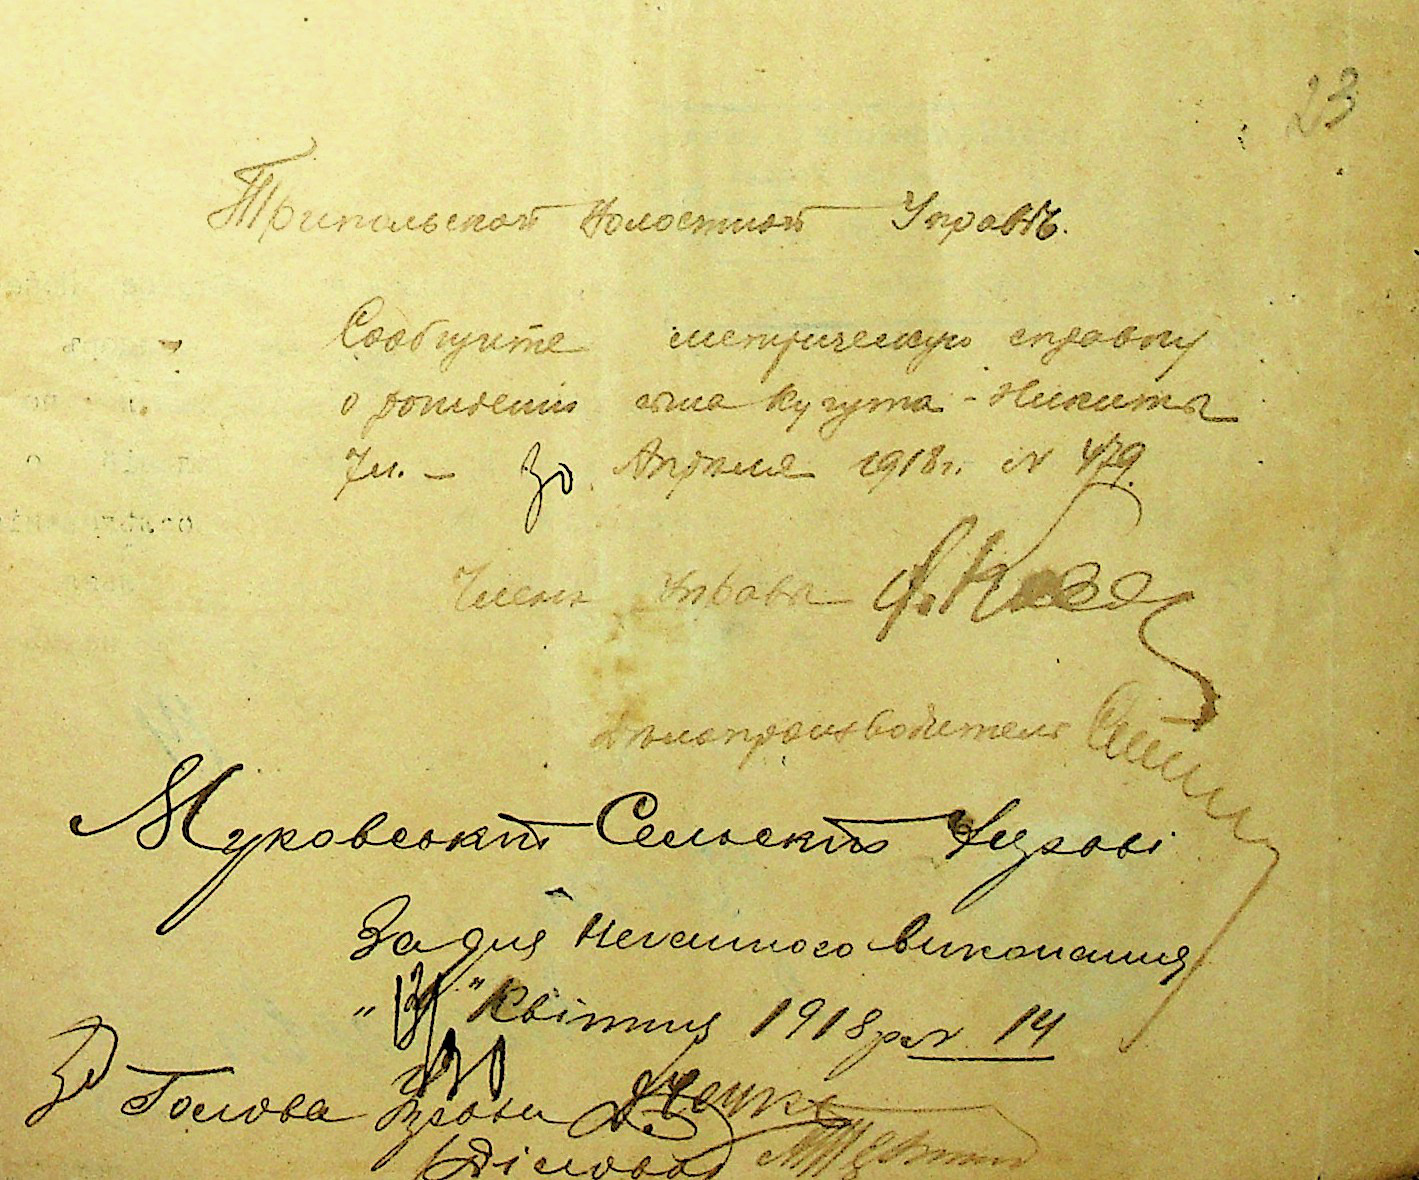 23
Трипольской Волостной Управѣ.
Сообщите метрическую справку
о рожденіи сына Кугута - Никиты
30 Апреля 1918 г. N 479.
Членъ Управы
Дѣлопроизводитель
Жуковський Сельский Управі
Задля негайного виконання
" 30 " Квітня 1918 р. N 14
Голова Управи
Діловод